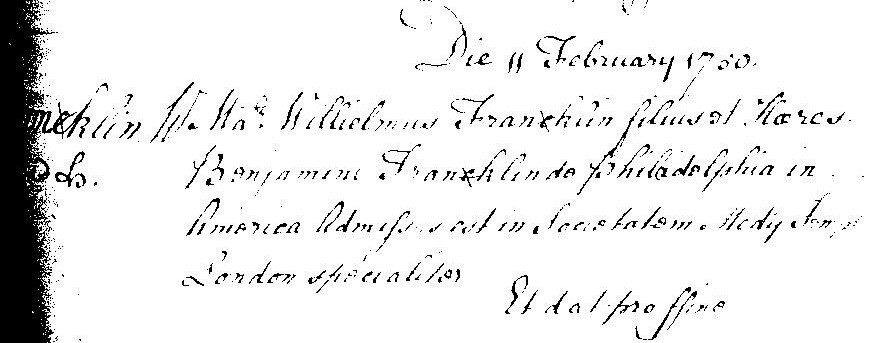 Die 11 February 1750.
Mar. Willielmus Francklin filius et Hæres
Benjamini Francklin de Philadelphia in
America Admissus est in Societatem Medij Temp
London specialiter
Et dat pro ffine